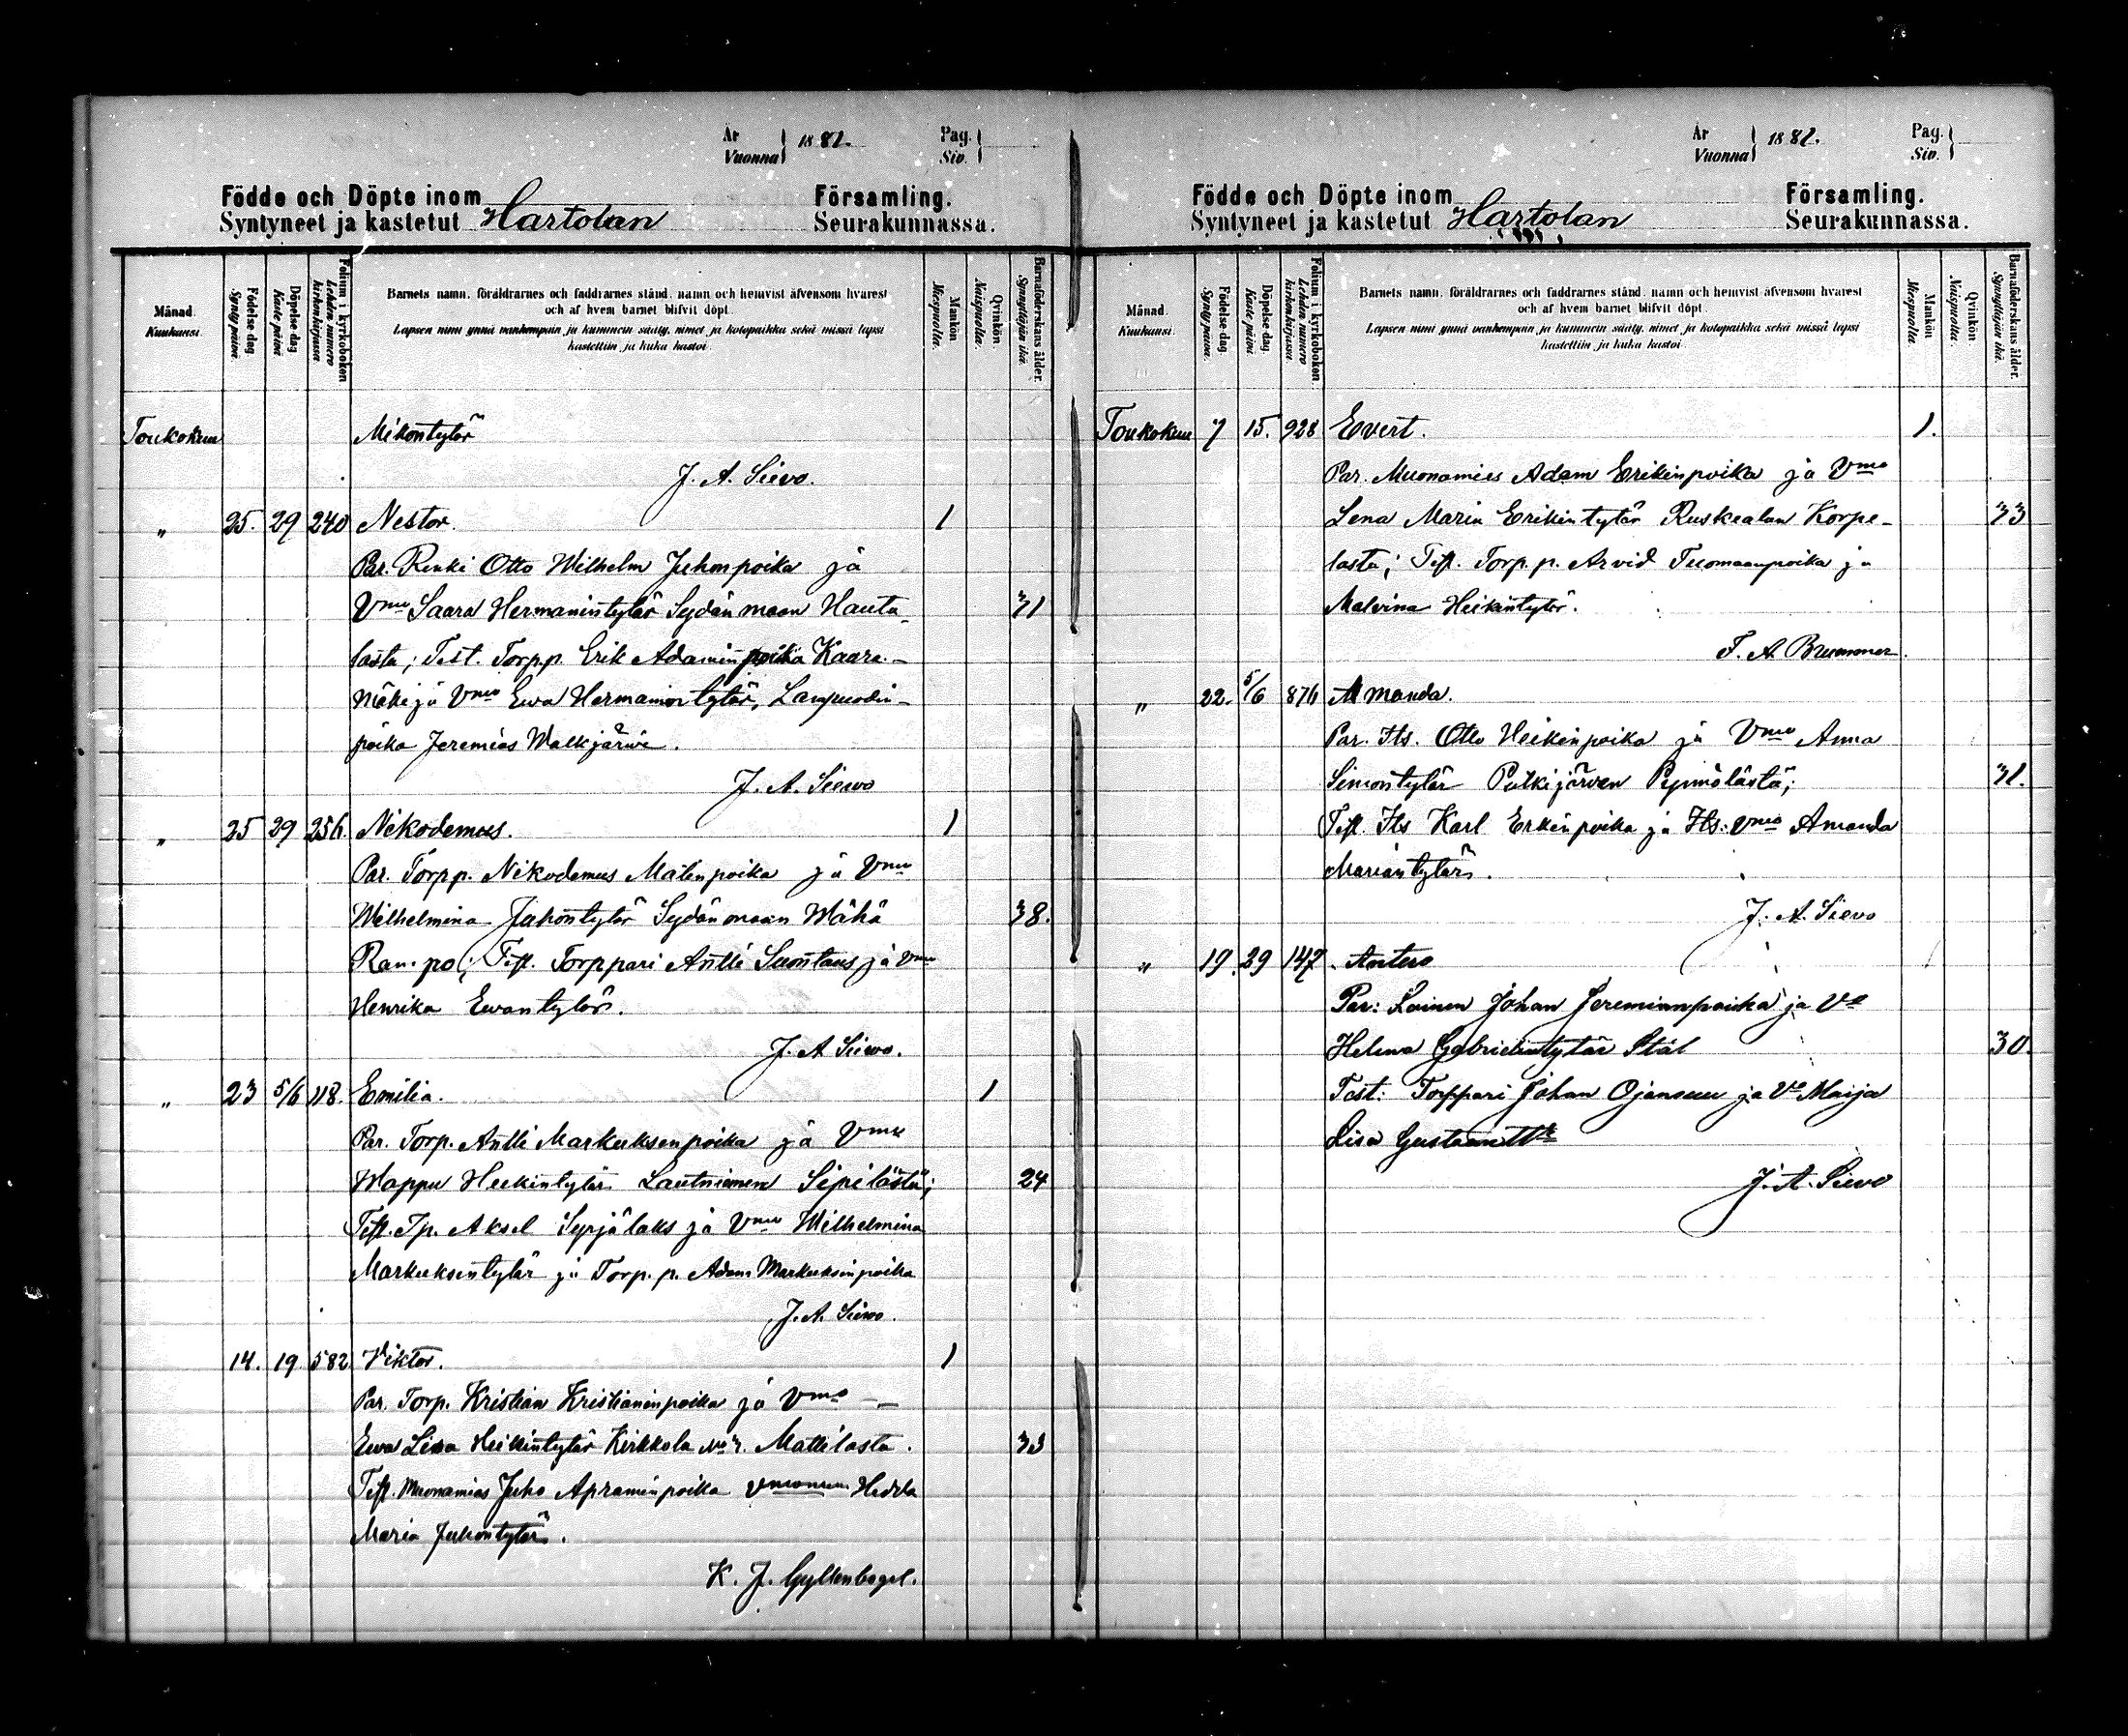 År
Vuonna 1882.
Pag.
Siv.
Födde och Döpte inom Församling.
Syntyneet ja kastetut Hartolan Seurakunnassa.
Månad. Kuukausi.
Födelse dag. Synty päivä.
Döpelse dag. Kaste päivä
Folium i kyrkoboken. Lehden numero kirkonkirjassa
Barnets namn, föräldrarnes och faddrarnes stånd, namn och hemvist äfvensom hvarest
och af hvem barnet blifvit döpt.
Lapsen nimi ynnä vanhempain ja kummein sääty, nimet ja kotopaikka sekä missä lapsi
kastettiin ja kuka kastoi.
Mankön Miespuolta.
Qvinkön. Naispuolta.
Barnaföderskans ålder. Synnyttäjän ikä.
Toukokuu Mikontytär
J. A. Sievo.
„ 25. 29 240 Nestor. 1
Par. Renki Otto Wilhelm Juhonpoika ja
Vmo Saara Hermanintytär Sydänmaan Hauta- 31
lasta; Test. Torp.p. Erik Adaminpoika Kaara-
mäki ja Vmo Ewa Hermanintytär,
poika Jeremias Walkjärwi.
J. A. Siewo
„ 25 29 256 Nikodemus. 1
Par. Torpp. Nikodemus Matinpoika ja Vmo
Wilhelmina Juhontytär Sydänmaan Wähä 38.
Test. Torppari Antti Suontaus ja Vmo
Henrika Ewantytär.
J. A Siewo.
„ 23 5/6 118. Emilia. 1
Par. Torp. Antti Markuksenpoika ja Vmo
Wappu Heikintytär Lautniemen Sipilästä; 24
Test. Tp. Aksel Syrjälaks ja Vmo Wilhelmina
Markuksentytär ja Torp. p. Adam Markuksinpoika
J. A. Siewo.
14. 19 582 Viktor. 1
Par. Torp. Kristian Kristianinpoika ja Vmo —
Ewa Lisa Heikintytär Kirkkola Mattilasta. 33
Test. Muonamies Juho Apraminpoika Hedda
Maria Juhontytär.
K. J. Gyllenbogel.
År
Vuonna 1882.
Pag.
Siv.
Födde och Döpte inom Församling.
Syntyneet ja kastetut Hartolan Seurakunnassa.
Månad. Kuukausi.
Födelse dag. Synty päivä.
Döpelse dag. Kaste päivä
Folium i kyrkoboken. Lehden numero kirkonkirjassa
Barnets namn, föräldrarnes och faddrarnes stånd, namn och hemvist äfvensom hvarest
och af hvem barnet blifvit döpt.
Lapsen nimi ynnä vanhempain ja kummein sääty, nimet ja kotopaikka sekä missä lapsi
kastettiin ja kuka kastoi.
Mankön Miespuolta.
Qvinkön Naispuolta.
Barnaföderskans ålder. Synnyttäjän ikä.
Toukokuu 7 15. 928 Evert. 1.
Par. Muonamies Adam Erikinpoika ja Vmo
Lena Maria Erikintytär Ruskealan Korpe- 33
lasta; Test. Torp. p. Arvid Tuomaanpoika ja
Malvina Heikintytär.
F. A. Brummer.
„ 22. 5/6 876 Amanda.
Par. Its. Otto Heikinpoika ja Vmo Anna
Simontytär Putkijärven 31.
Test. Its Karl Erkinpoika ja Its: Vmo Amanda
Mariantytär.
J. A. Sievo
„ 19. 29 147 Antero 1
Par: Loinen Johan Jeremiaanpoika ja Vo
Helena Gabrielintytär Stål 30.
Test: Torppari Johan Ojansuu ja Vo Maija
Lisa
J. A. Sievo